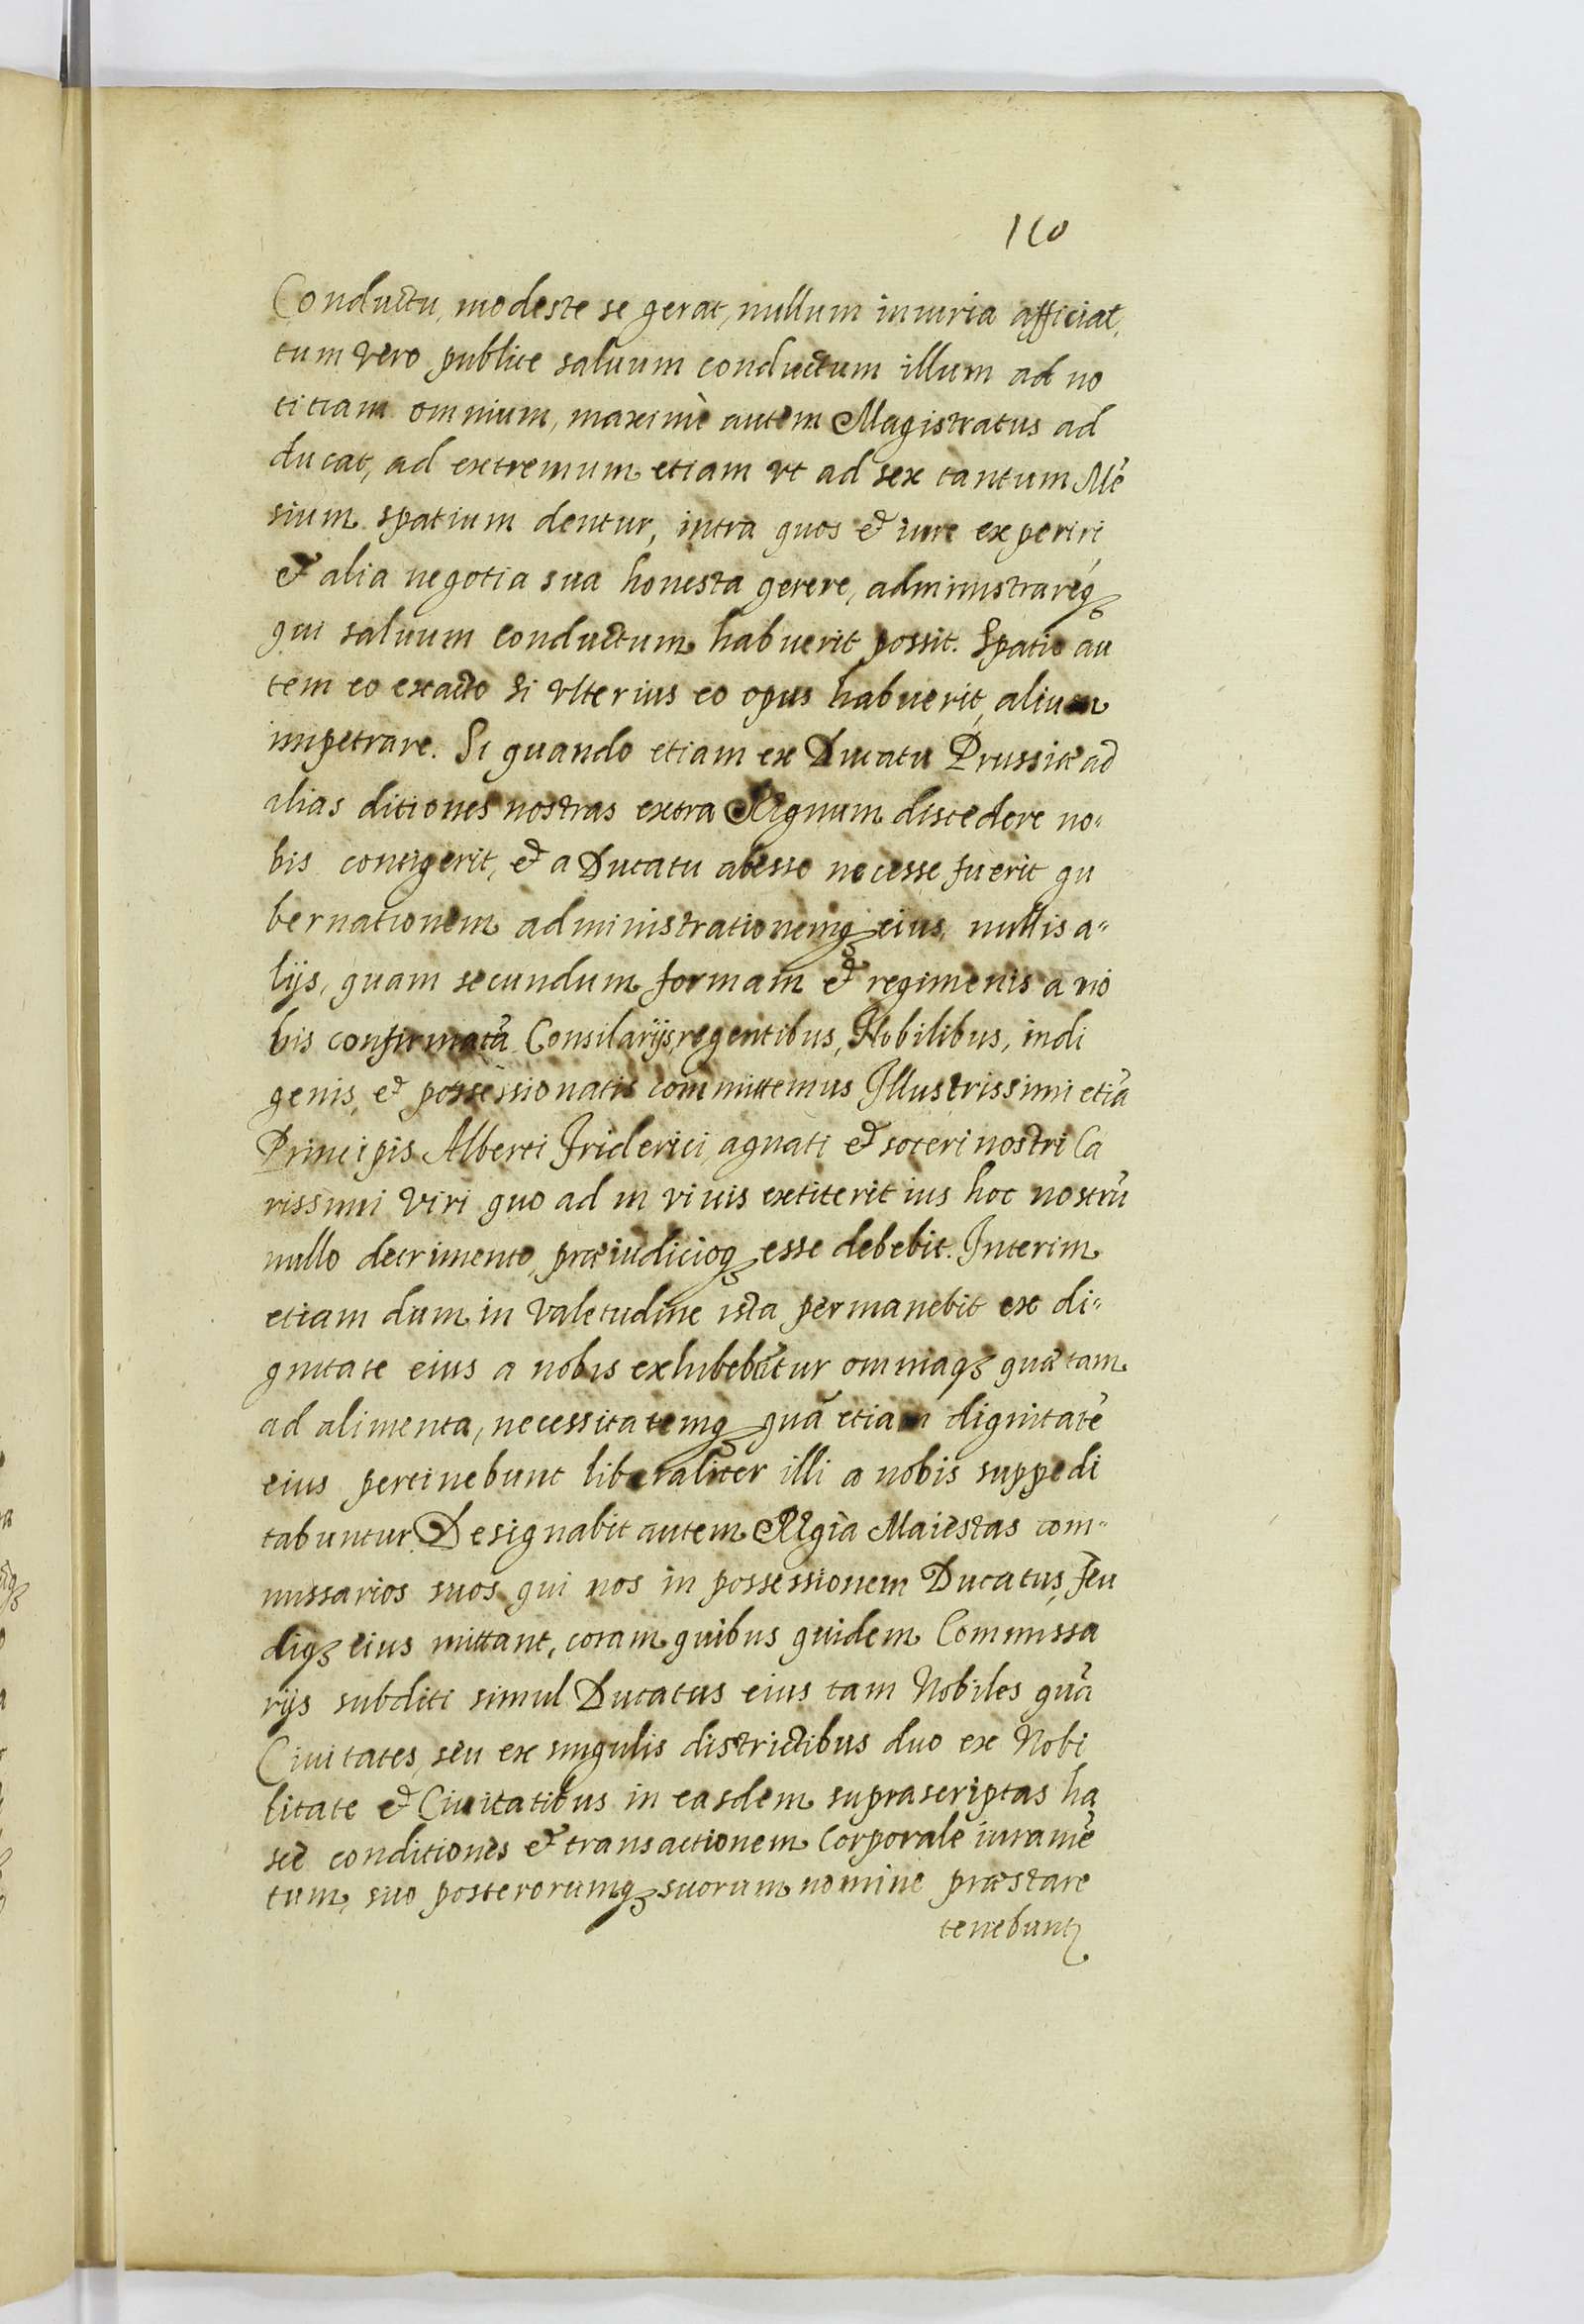 110
Conductu, modeste se gerat, nullum iniuria afficiat,
tum vero publice saluum conductum illum ad no
titiam omnium, maximè autem Magistratus ad
ducat, ad extremum etiam vt ad sex tantum Mẽ
sium spatium dentur, intra quos et iure experiri,
et alia negotia sua honesta gerere, administrareq;
qui saluum conductum habuerit possit. Spatio au
tem eo exacto si vlterius eo opus habuerit, alium
impetrare. Si quando etiam ex Ducatu Prussiæ ad
alias ditiones nostras extra Regnum discedere no-
bis contigerit, et a Ducatu abesse necesse fuerit gu
bernationem administrationemq; eius, nullis a-
lijs, quam secundum formam et regimenis a no
bis confirmatã Consilarijs, regentibus, Nobilibus, indi
genis, et possessionatis committemus Illustrissimi etiã
Principis Alberti Friderici agnati et soceri nostri Ca
rissimi viri quo ad in viuis extiterit ius hoc nostrũ
nullo detrimento, præiudicioq; esse debebit. Interim
etiam dum in valetudine ista permanebit ex di-
gnitate eius a nobis exhibebitur omniaq; quæ tam
ad alimenta, necessitatemq; quã etiam dignitatẽ
eius pertinebunt liberaliter illi a nobis suppedi
tabuntur. Designabit autem Regia Maiestas com-
missarios suos qui nos in possessionem Ducatus, feu
diq; eius mittant, coram quibus quidem Commissa
rijs subditi simul Ducatus eius tam Nobiles quã
Ciuitates, seu ex singulis districtibus duo ex Nobi
litate et Ciuitatibus in easdem suprascriptas ha
sce conditiones et transactionem Corporale iuramẽ
tum, suo posterorumq; suorum nomine præstare
tenebunt